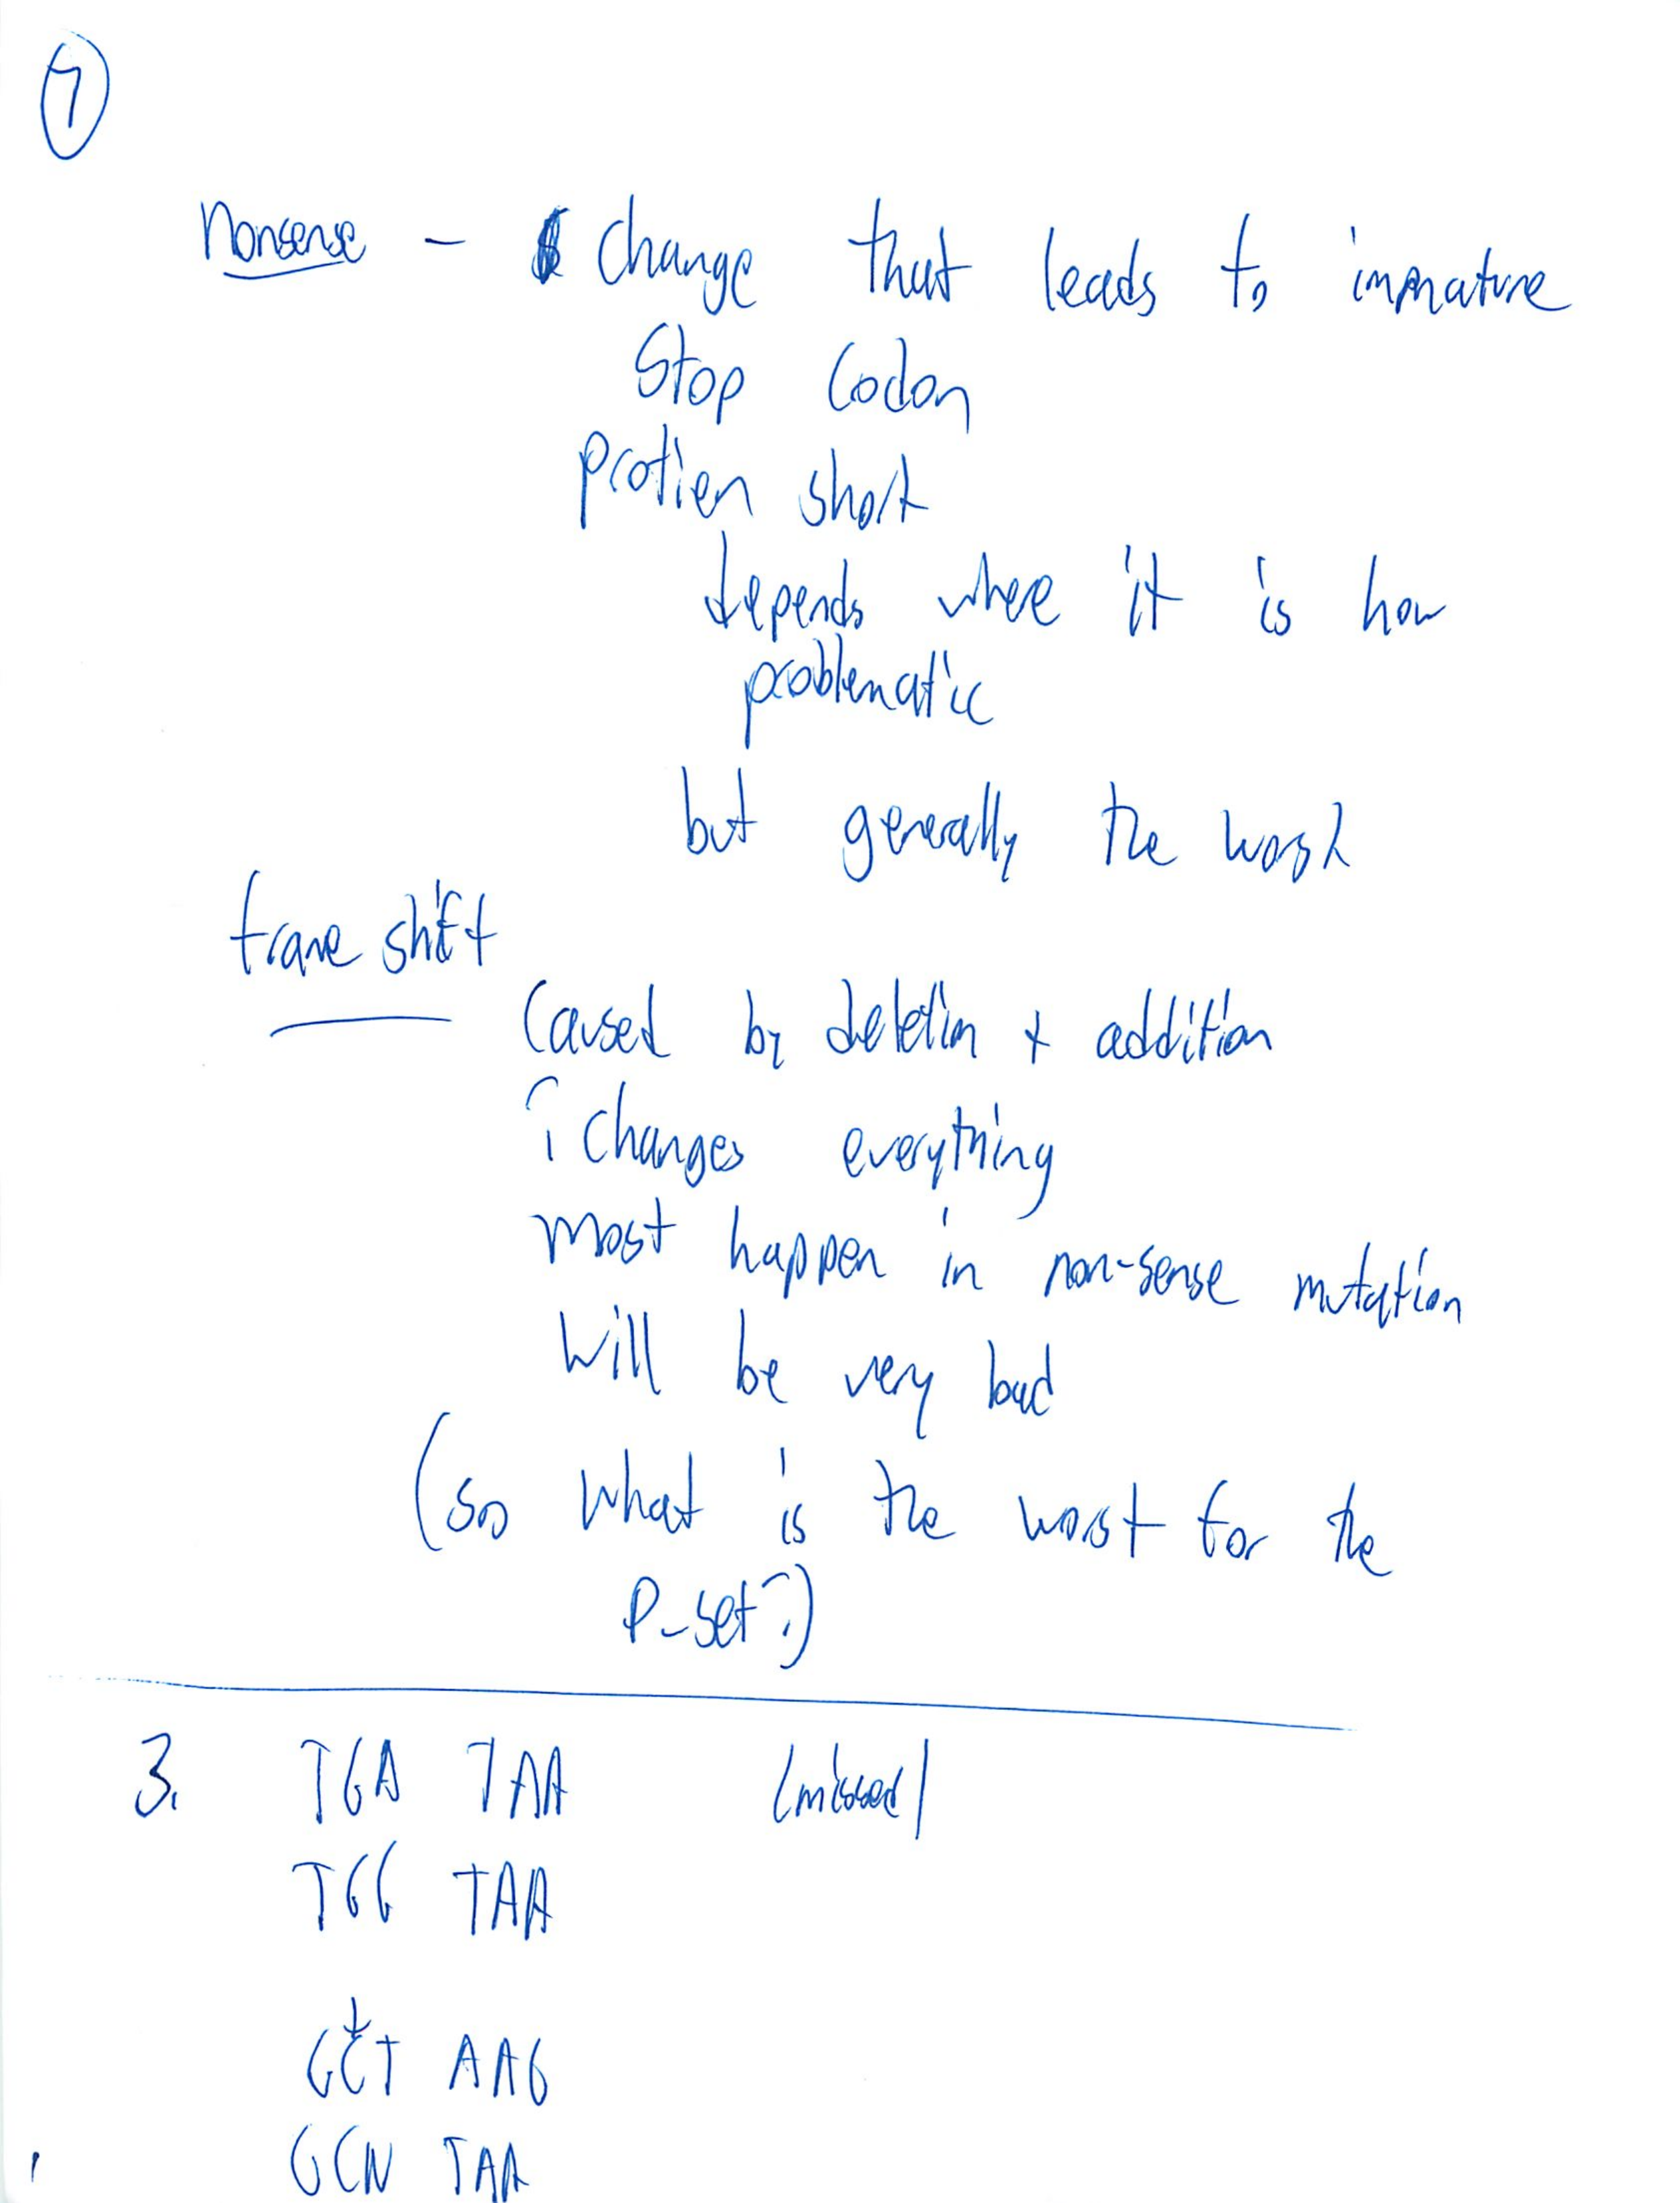 7
Nonsense - change that leads to immature
Stop Codon
protien short
depends where it is how
problematic
but generally the worst
frame shift
Caused by deletion + addition
↑ changes everything
most happen in non-sense mutation
will be very bad
(so what is the worst for the
P-set?)
3. TGA TAA (missed)
TGG TAA
↓
GCT AAG
GCN TAA